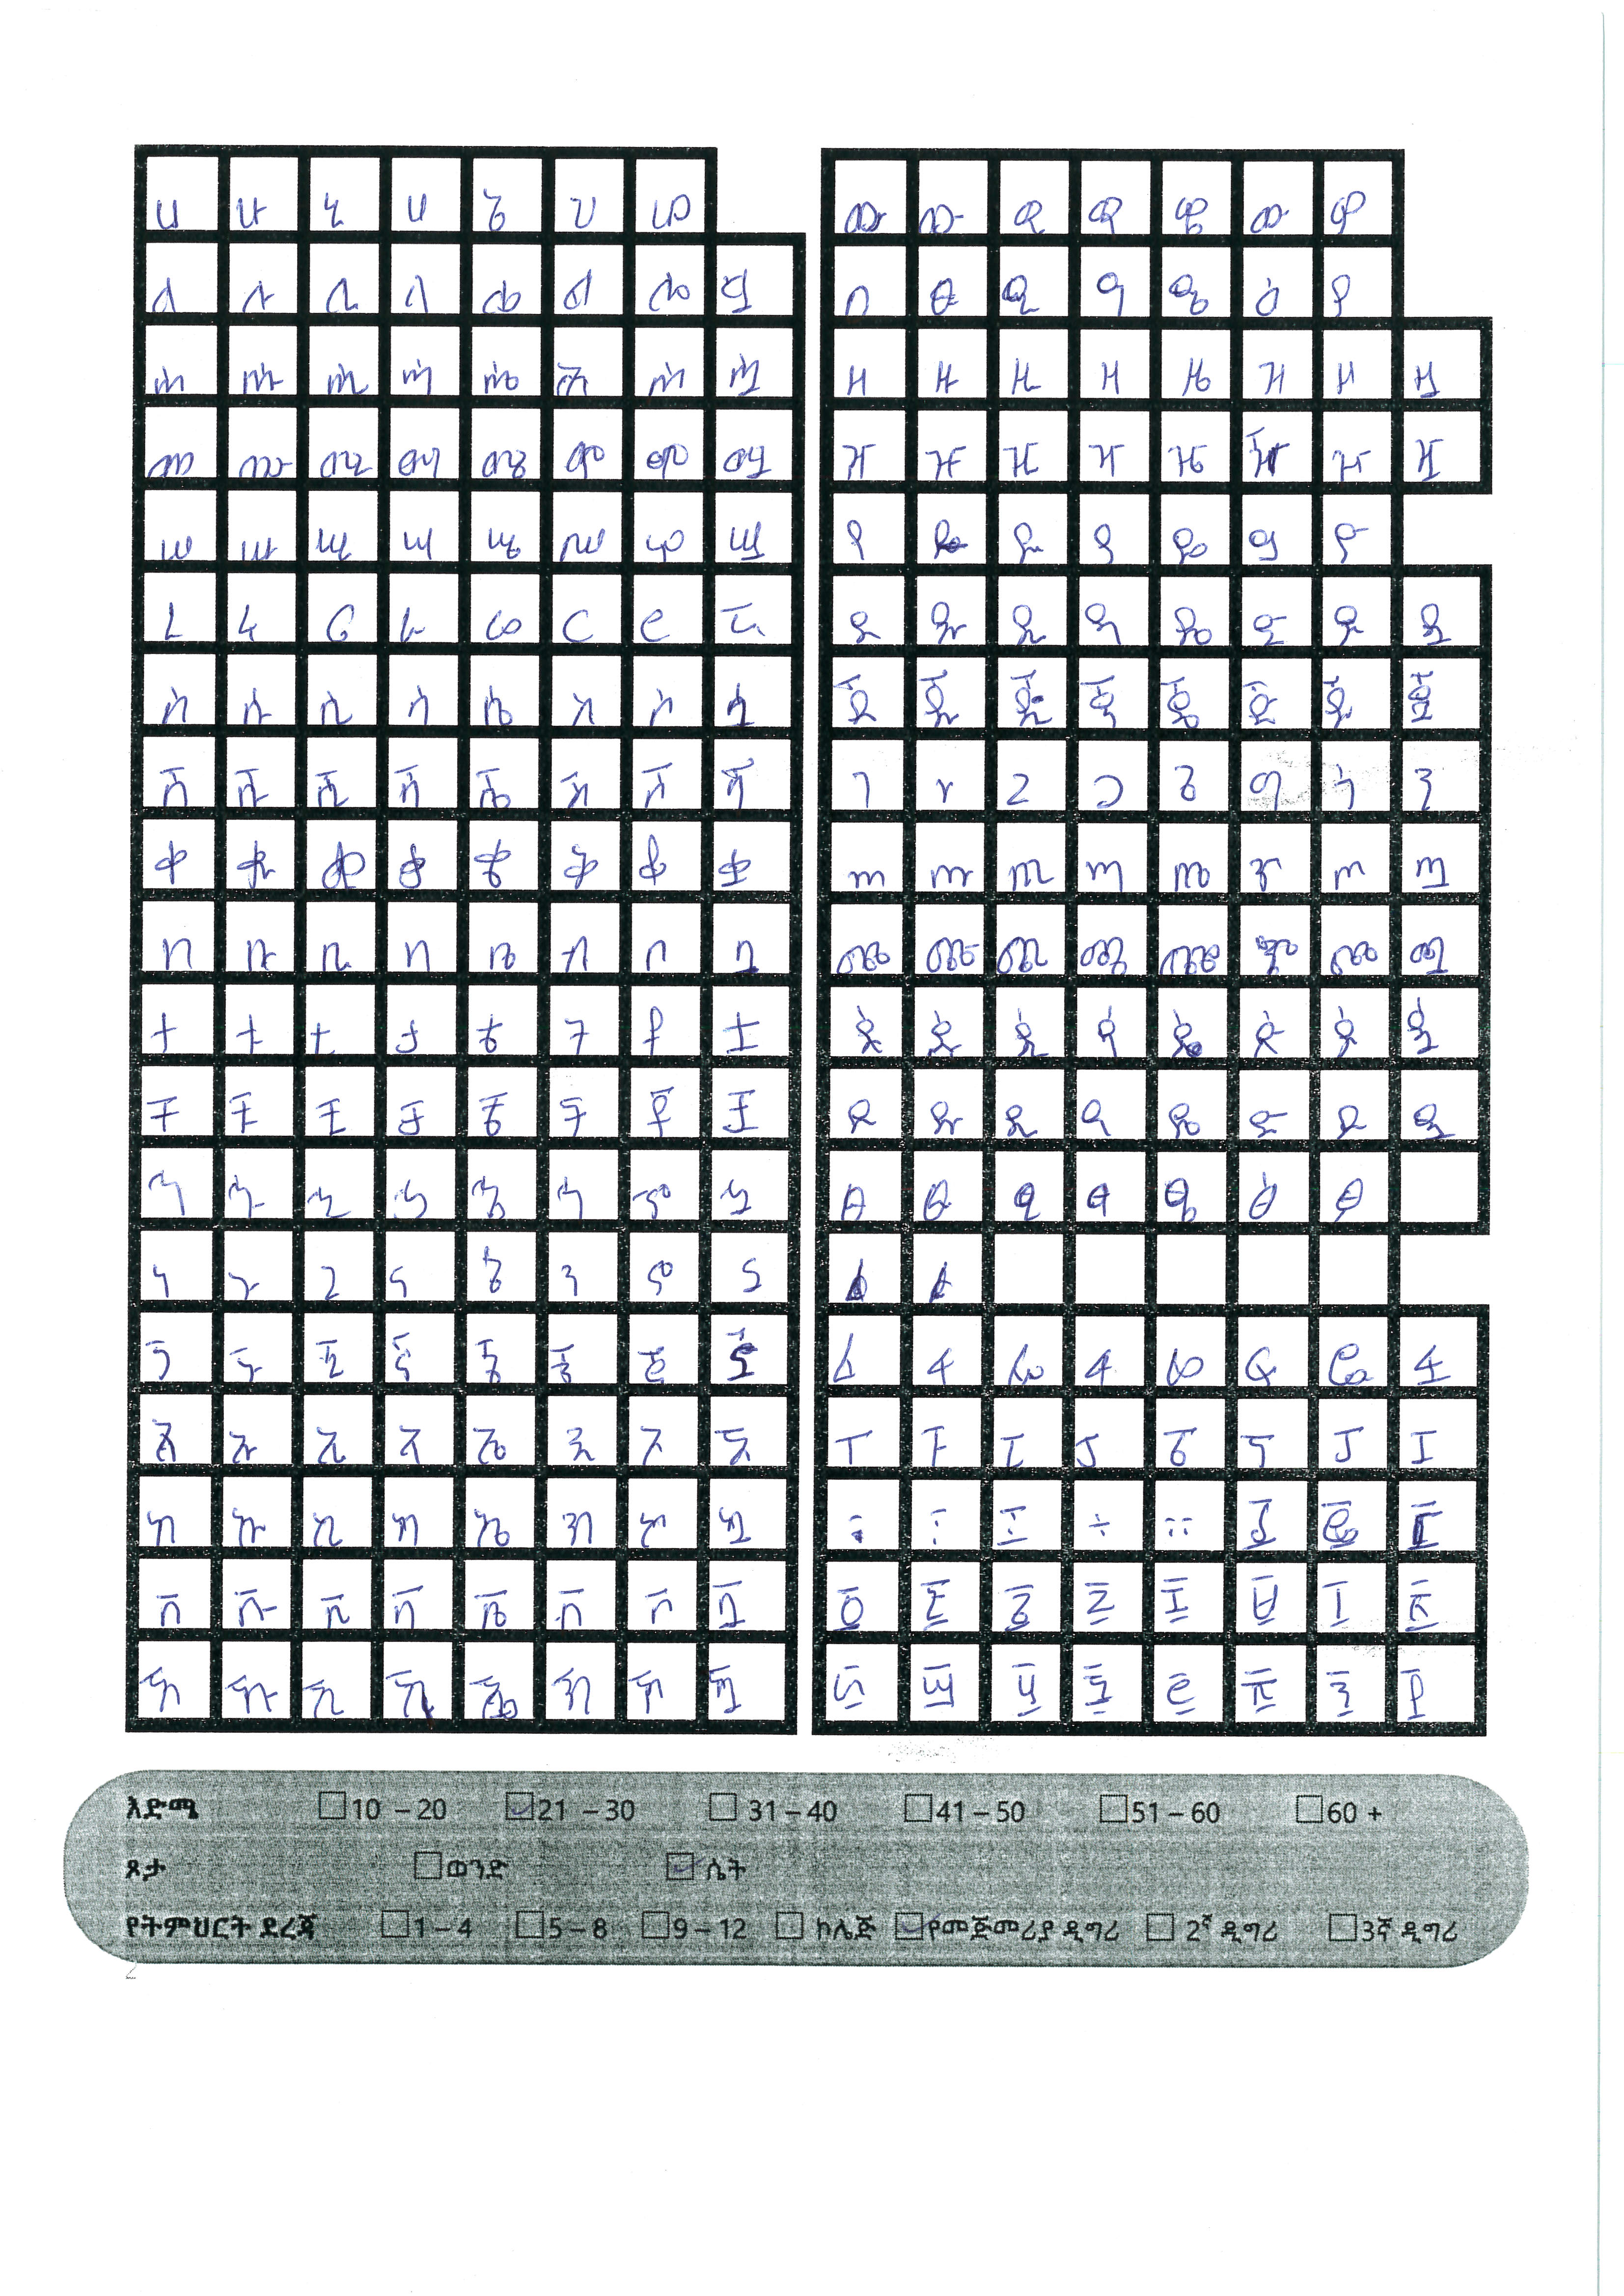 ሀ ሁ ሂ ሃ ሄ ህ ሆ
ለ ሉ ሊ ላ ሌ ል ሎ ሏ
ሐ ሑ ሒ ሓ ሔ ሕ ሖ ሗ
መ ሙ ሚ ማ ሜ ም ሞ ሟ
ሠ ሡ ሢ ሣ ሤ ሥ ሦ ሧ
ረ ሩ ሪ ራ ሬ ር ሮ ሯ
ሰ ሱ ሲ ሳ ሴ ስ ሶ ሷ
ሸ ሹ ሺ ሻ ሼ ሽ ሾ ሿ
ቀ ቁ ቂ ቃ ቄ ቅ ቆ ቋ
በ ቡ ቢ ባ ቤ ብ ቦ ቧ
ተ ቱ ቲ ታ ቴ ት ቶ ቷ
ቸ ቹ ቺ ቻ ቼ ች ቾ ቿ
ኀ ኁ ኂ ኃ ኄ ኅ ኆ ኋ
ነ ኑ ኒ ና ኔ ን ኖ ኗ
ኘ ኙ ኚ ኛ ኜ ኝ ኞ ኟ
አ ኡ ኢ ኣ ኤ እ ኦ ኧ
ከ ኩ ኪ ካ ኬ ክ ኮ ኳ
ኸ ኹ ኺ ኻ ኼ ኽ ኾ
ወ ዉ ዊ ዋ ዌ ው ዎ
ዐ ዑ ዒ ዓ ዔ ዕ ዖ
ዘ ዙ ዚ ዛ ዜ ዝ ዞ ዟ
ዠ ዡ ዢ ዣ ዤ ዥ ዦ ዧ
የ ዩ ዪ ያ ዬ ይ ዮ
ደ ዱ ዲ ዳ ዴ ድ ዶ ዷ
ጀ ጁ ጂ ጃ ጄ ጅ ጆ ጇ
ገ ጉ ጊ ጋ ጌ ግ ጎ ጓ
ጠ ጡ ጢ ጣ ጤ ጥ ጦ ጧ
ጨ ጩ ጪ ጫ ጬ ጭ ጮ ጯ
ጰ ጱ ጲ ጳ ጴ ጵ ጶ ጷ
ጸ ጹ ጺ ጻ ጼ ጽ ጾ ጿ
ፀ ፁ ፂ ፃ ፄ ፅ ፆ
ፈ ፉ ፊ ፋ ፌ ፍ ፎ ፏ
ፐ ፑ ፒ ፓ ፔ ፕ ፖ ፗ
፡ ፣ ፤ ÷ ። ፩ ፪ ፫
፬ ፭ ፮ ፯ ፰ ፱ ፲ ፳
፴ ፵ ፶ ፷ ፸ ፹ ፺ ፻
እድሜ 10 – 20 21 – 30 31 – 40 41 – 50 51 – 60 60 +
ጾታ ወንድ ሴት
የትምህርት ደረጃ 1 – 4 5 – 8 9 – 12 ኮሌጅ የመጀመሪያ ዲግሪ 2ኛ ዲግሪ 3ኛ ዲግሪ